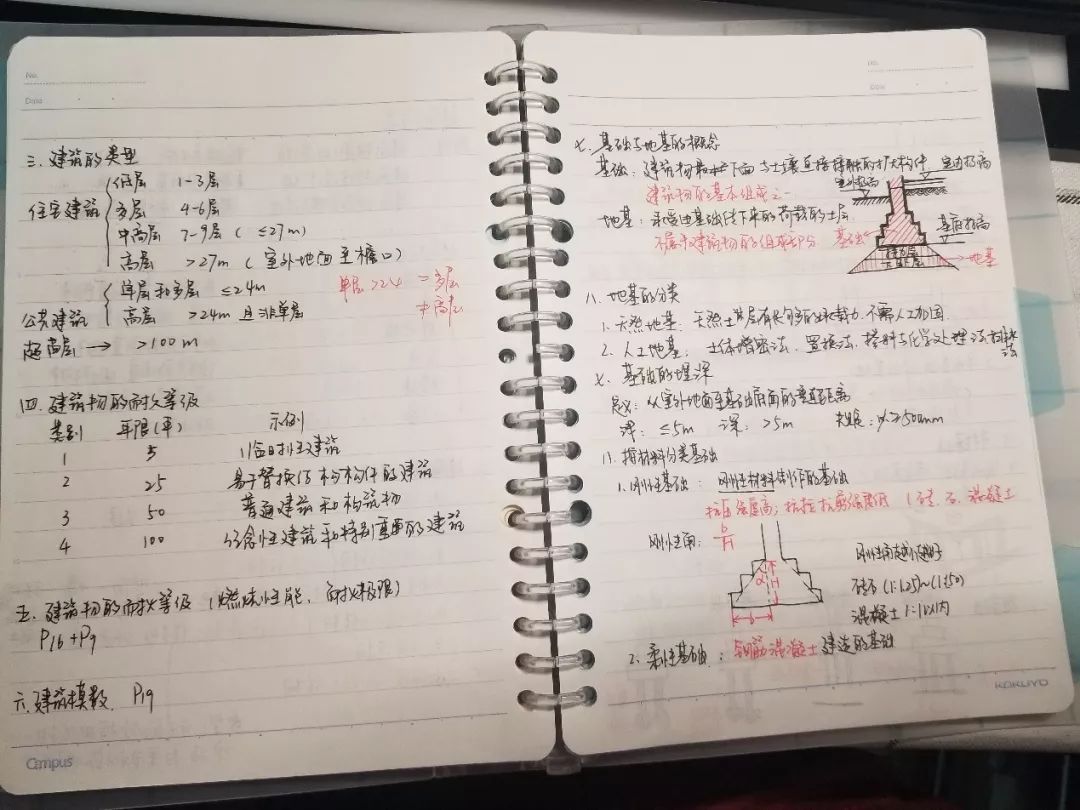 No.
Date
三. 建筑的类型
住宅建筑
低层 1-3层
多层 4-6层
中高层 7-9层 ( ≤27m )
高层 >27m ( 室外地面至檐口 )
公共建筑
单层和多层 ≤24m
高层 >24m 且非单层
单层>24 =多层
中高层
超高层 → >100m
四. 建筑物的耐久等级
类别 年限(年) 示例
1 5 临时性建筑
2 25 易于替换结构构件的建筑
3 50 普通建筑和构筑物
4 100 纪念性建筑和特别重要的建筑
五. 建筑物的耐火等级 (燃烧性能、耐火极限)
P16+P9
六. 建筑模数. P19
Campus
No.
Date
七. 基础与地基的概念
基础: 建筑物最下面与土壤直接接触的扩大构件
建筑物的基本组成之一
地基: 承受由基础传下来的荷载的土层
不属于建筑物的组成部分
室内标高
室外标高
基底标高
基础
垫层
持力层
地基
八. 地基的分类
1. 天然地基: 天然土层有足够的承载力, 不需人工加固
2. 人工地基: 土体增密法、置换法、掺料与化学处理法、排水法
七. 基础的埋深
定义: 从室外地面至基础底面的垂直距离
浅: ≤5m 深: >5m ≥500mm
八. 按材料分类基础
1. 刚性基础: 刚性材料制作的基础
抗压强度高; 抗拉抗剪强度低 (砖、石、混凝土
刚性角: b/H
α H
b
刚性角越小越好
砖石 (1:1.25)~(1:1.50)
混凝土 1:1以内
2. 柔性基础: 钢筋混凝土建造的基础
KOKUYO